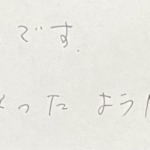 です.
った よう